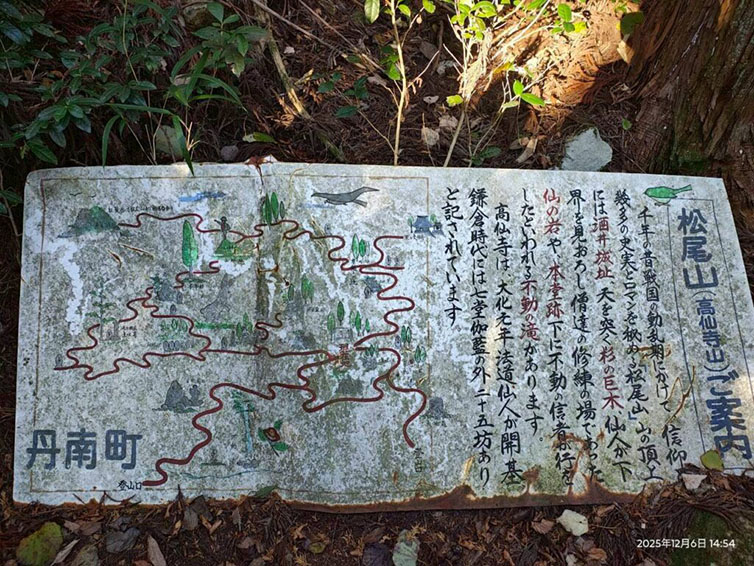 松尾山(高仙寺山)ご案内
千年の昔戦国の動乱期にかけて、信仰
幾多の史実とロマンを秘めた松尾山 山の頂上
には酒井城址 天を突く杉の巨木、仙人が下
界を見おろし僧達の修練の場であった
仙の岩や、本堂跡下に不動の信者が行を
したといわれる不動の滝があります。
高仙寺は、大化元年 法道仙人が開基
鎌倉時代には七堂伽藍の外 二十五坊あり
と記されています。
丹南町
登山口
登山口
2025年12月6日 14:54